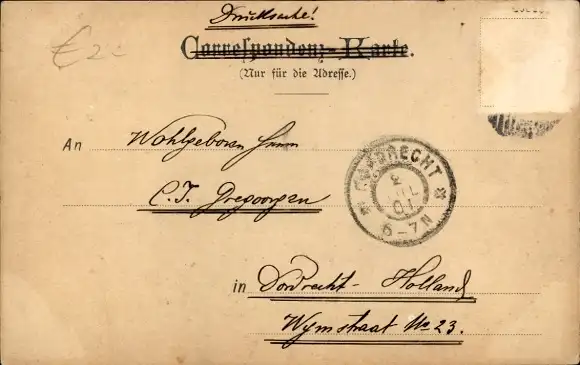 Drucksache!
Correspondenz-Karte.
(Nur für die Adresse.)
€2
An Wohlgeboren Herrn
C.J. Gregoorgen
DORDRECHT
2 JUL 01
6-7N
in Dordrecht - Holland
Wijnstraat No 23.